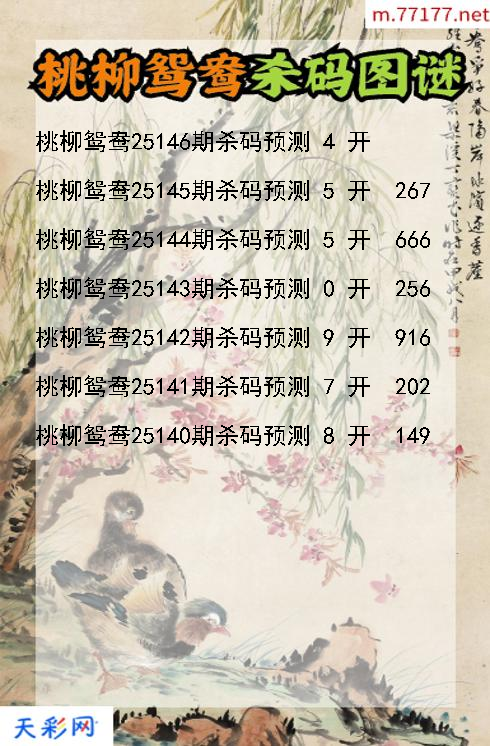 m.77177.net
桃柳鸳鸯杀码图谜
桃柳鸳鸯25146期杀码预测 4 开
桃柳鸳鸯25145期杀码预测 5 开 267
桃柳鸳鸯25144期杀码预测 5 开 666
桃柳鸳鸯25143期杀码预测 0 开 256
桃柳鸳鸯25142期杀码预测 9 开 916
桃柳鸳鸯25141期杀码预测 7 开 202
桃柳鸳鸯25140期杀码预测 8 开 149
天彩网